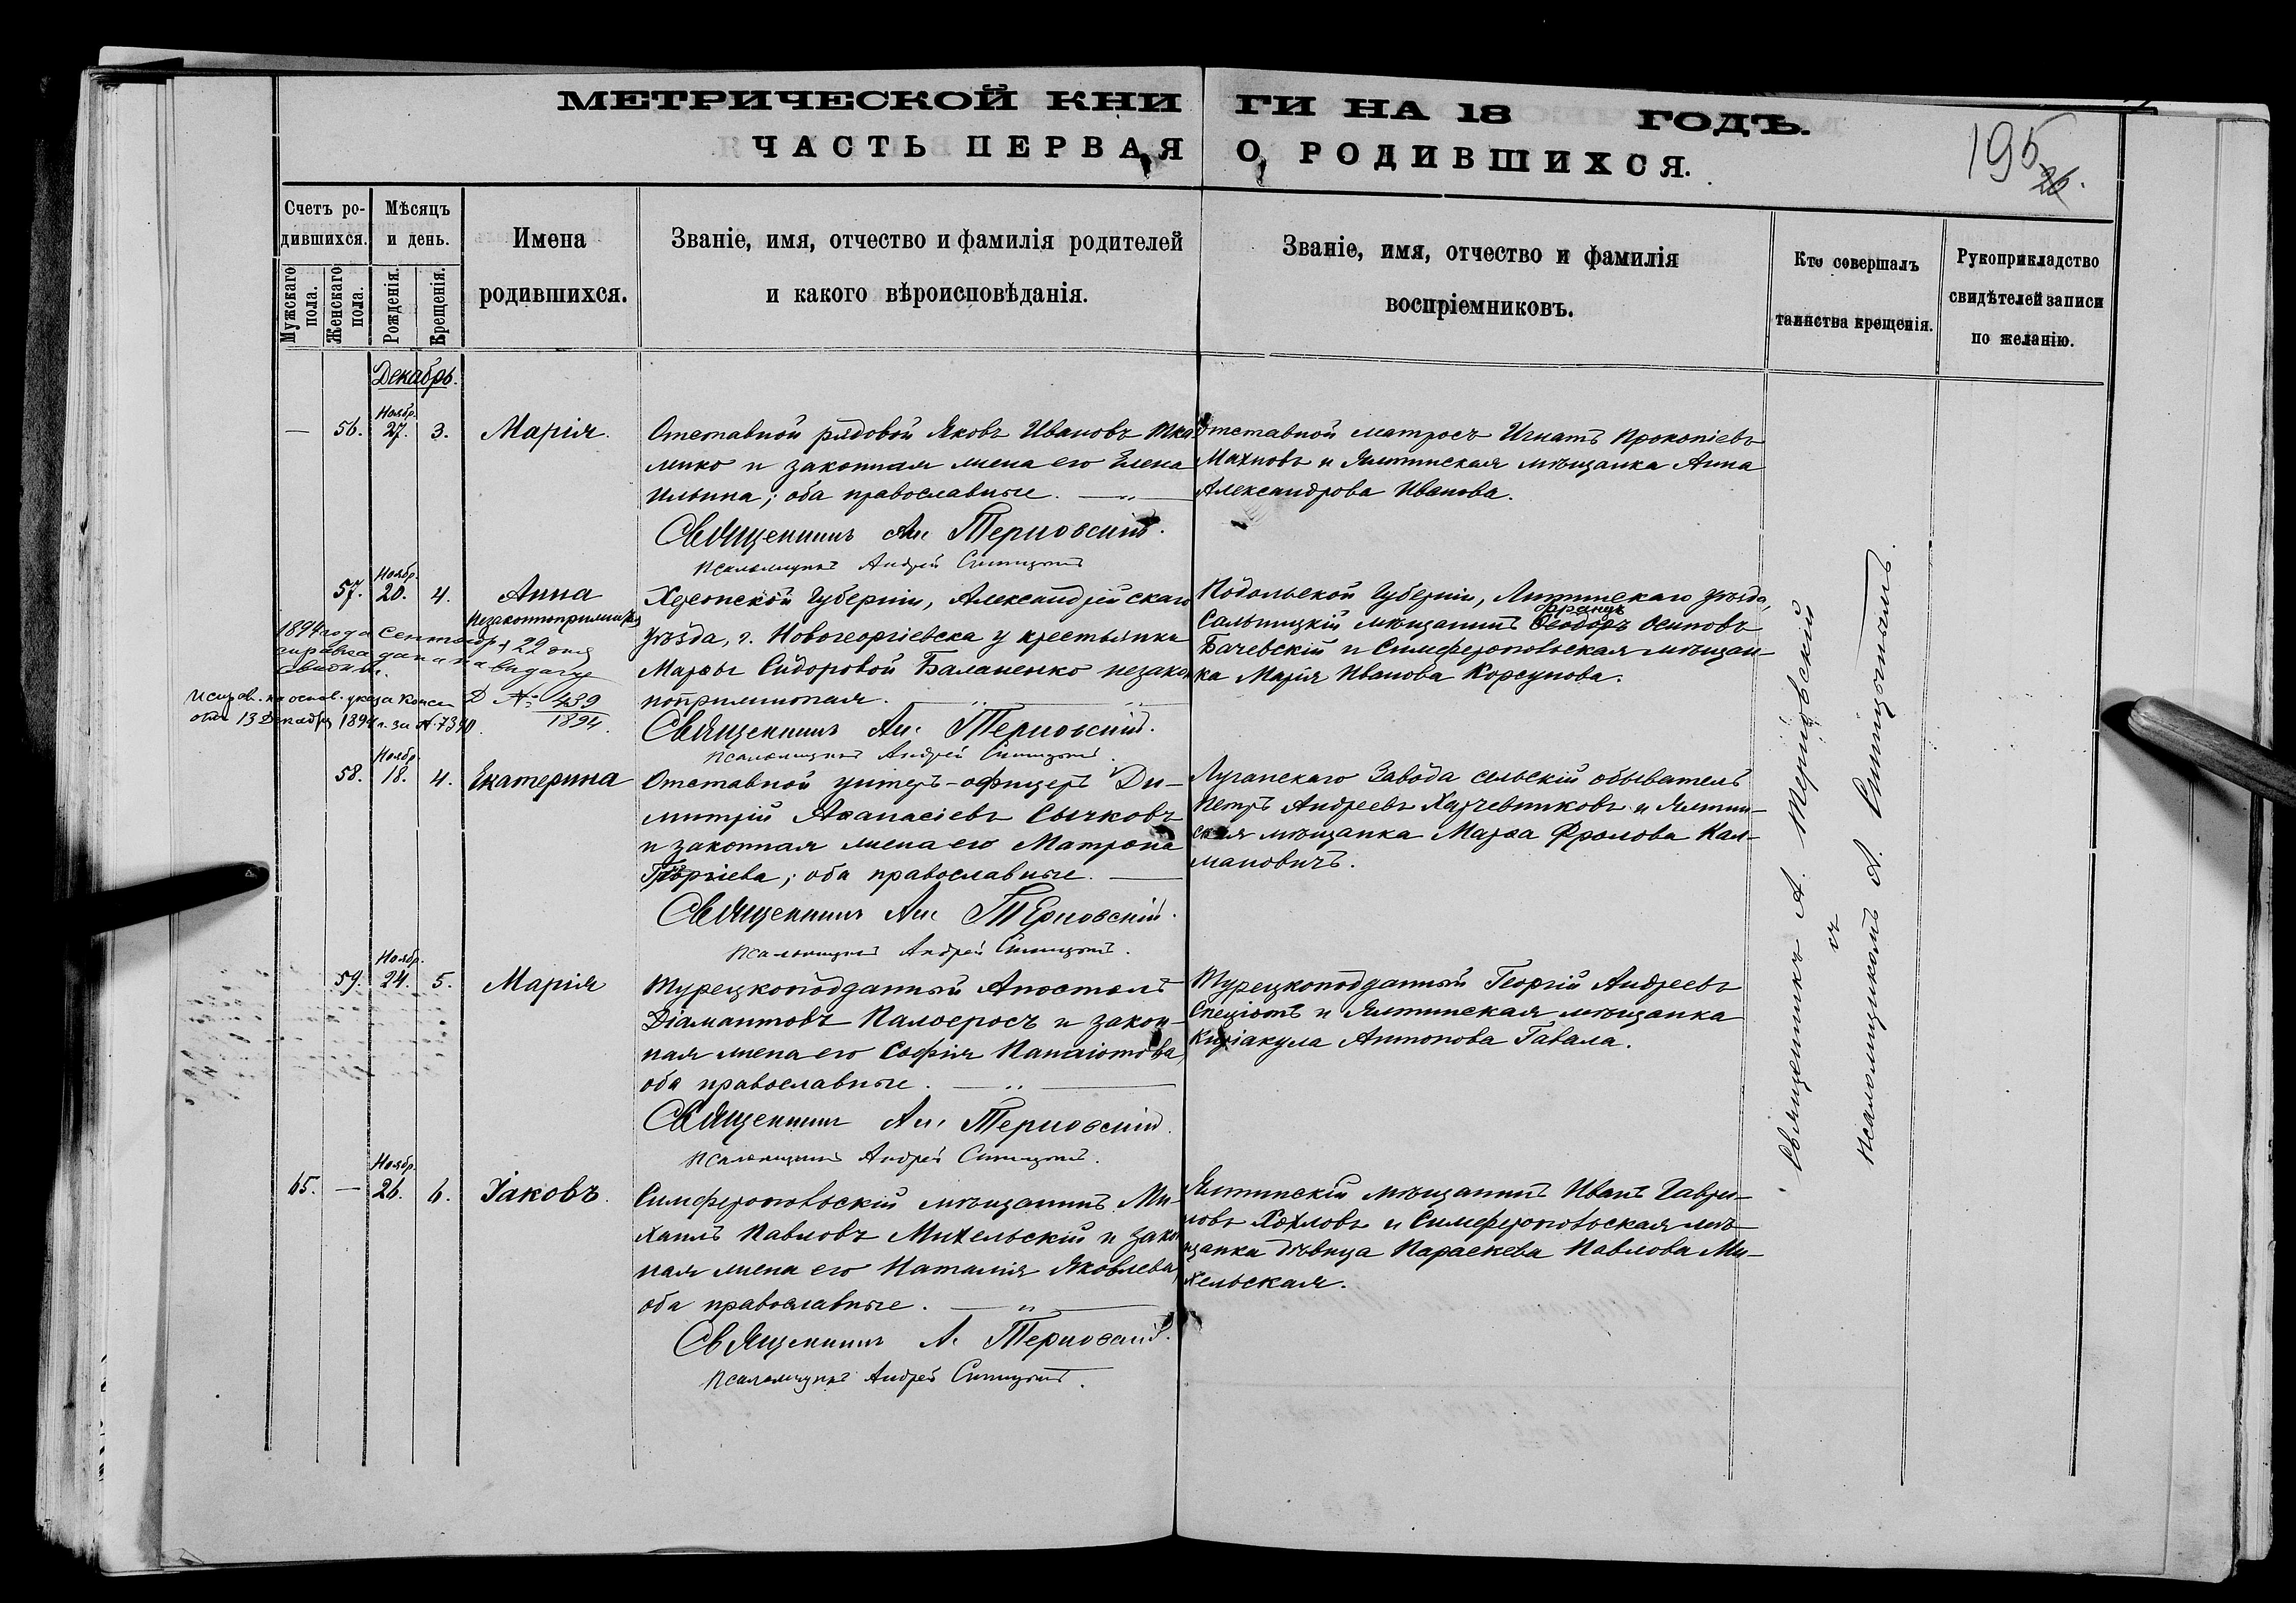 МЕТРИЧЕСКОЙ КНИ ГИ НА 18 ГОДЪ.
ЧАСТЬ ПЕРВАЯ О РОДИВШИХСЯ.
195
26.
Счетъ ро-
дившихся.
Мужскаго
пола.
Женскаго
пола.
Мѣсяцъ
и день.
Рожденія.
Крещенія.
Имена
родившихся.
Званіе, имя, отчество и фамилія родителей
и какого вѣроисповѣданія.
Званіе, имя, отчество и фамилія
воспріемниковъ.
Кто совершалъ
таинства крещенія.
Рукоприкладство
свидѣтелей записи
по желанію.
Декабрь.
— 56. Ноябр. 27. 3. Марія.
Отставной рядовой Яковъ Ивановъ Шка
лико и законная жена его Елена
Ильина; оба православные.
Священникъ Ан. Терновскій.
Псаломщикъ Андрей Синицкій
Отставной матросъ Игнатъ Прокопіевъ
Махновъ и Ялтинская мѣщанка Анна
Александрова Иванова.
57. Ноябр. 20. 4. Анна
Незаконноприжитая
1894 года Сентября 22 дня
справка дана на выдачу
свидѣт.
Д № 439
1894.
Исправ. на основ. указа Конси
отъ 13 Декабря 1894 г. за № 7390.
Херсонской Губерніи, Александрійскаго
уѣзда, г. Новогеоргіевска у крестьянки
Марѳы Сидоровой Баланенко незакон
ноприжитая.
Священникъ Ан. Терновскій.
Псаломщикъ Андрей Синицкій.
Подольской Губерніи, Литинскаго уѣзда,
Францъ
Сальницкій мѣщанинъ Ѳеодоръ Осиповъ
Бачевскій и Симферопольская мѣщан-
ка Марія Иванова Корсунова.
58. Ноябр. 18. 4. Екатерина
Отставной унтеръ-офицеръ Ди-
митрій Аѳанасіевъ Сычковъ
и законная жена его Матрона
Георгіева; оба православные.
Священникъ Ан. Терновскій.
Псаломщикъ Андрей Синицкій.
Луганскаго Завода сельскій обыватель
Петръ Андреевъ Харчевниковъ и Ялтин-
ская мѣщанка Марѳа Фролова Кал-
мановичъ.
59. Ноябр. 24. 5. Марія
Турецкоподданный Апостолъ
Діамантовъ Палоеросъ и закон-
ная жена его Софія Панаіотова,
оба православные.
Священникъ Ан. Терновскій.
Псаломщикъ Андрей Синицкій.
Турецкоподданный Георгій Андреевъ
Спеціотъ и Ялтинская мѣщанка
Киріакула Антонова Гавала.
65. — Ноябр. 26. 6. Іаковъ.
Симферопольскій мѣщанинъ Ми-
хаилъ Павловъ Михельскій и закон
ная жена его Наталія Яковлева,
оба православные.
Священникъ А. Терновскій.
Псаломщикъ Андрей Синицкій.
Ялтинскій мѣщанинъ Иванъ Гаври-
ловъ Хохловъ и Симферопольская мѣ-
щанка дѣвица Параскева Павлова Ми-
хельская.
Священникъ А. Терновскій
съ
Псаломщикомъ А. Синицкимъ.